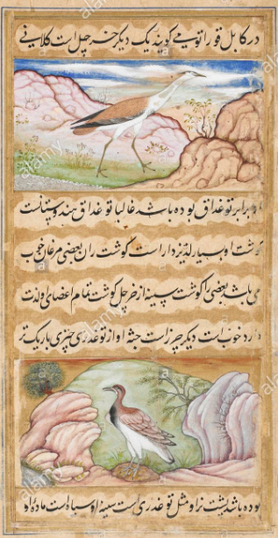 در کابل قورا تومی گویند یک دیگر خرچل است کلانی
برابر توغداق بوده باشد غالبا توغداق هندوستانست
گوشت او بسیار لذیذ دار است گوشت ران بعضی مرغان خوب
می باشد بعضی را گوشت سینه از خرچل گوشت تمام اعضای او لذت
دارد خوب است دیگر چرز است جثه او از توغدری چیزی باریک تر
بوده باشد پشت نر او مثل توغدری است سینه او سیاه است ماده او
alamy